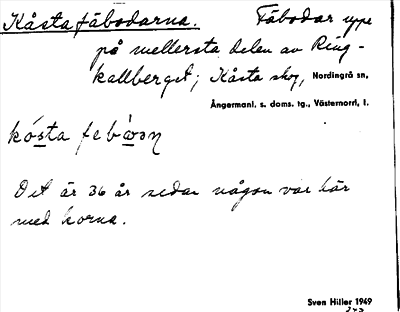 Kåsta fäbodarna. Fäbodar uppe
på mellersta delen av Ring-
kallberget; Kåsta skog, Nordingrå sn,
Ångermanl. s. doms. tg., Västernorrl. l.
kósta
Det är 36 år sedan någon var här
med korna.
Sven Hiller 1949